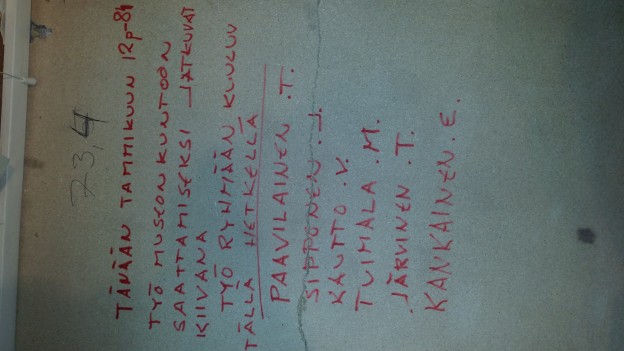 73,4
TÄNÄÄN TAMMIKUUN 12p-84
TYÖ MUSEON KUNTOON
SAATTAMISEKSI JATKUVAT
KIIVANA
TYÖ RYHMÄÄN KUULUU
TÄLLÄ HETKELLÄ
PAAVILAINEN .T.
SIPPONEN .J.
KAUTTO .V.
TUIMALA .M.
JÄRVINEN .T.
KANKAINEN .E.